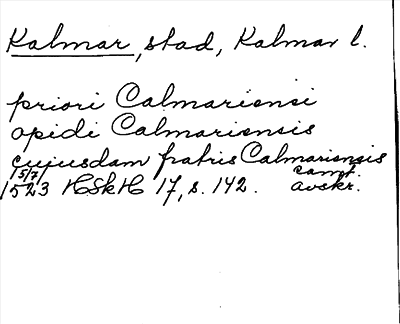 Kalmar, stad, Kalmar l.
priori Calmariensi
opidi Calmariensis
cujusdam fratris Calmariensis
15/7 samt.
1523 HSkH 17, s. 142. avskr.